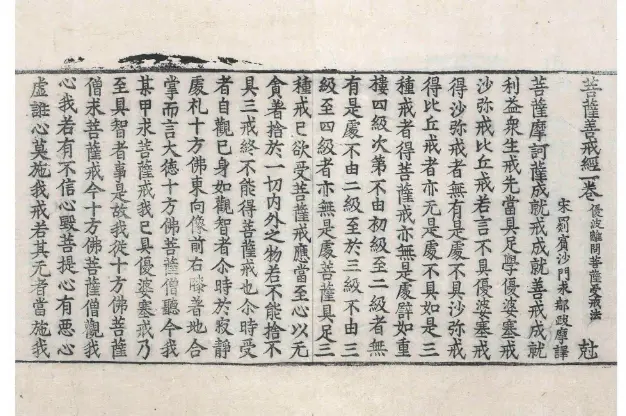 菩薩善戒經一卷 優波離問菩薩受戒法 尅
宋罽賓沙門求那跋摩譯
菩薩摩訶薩成就戒成就善戒成就
利益衆生戒先當具足學優婆塞戒
沙弥戒比丘戒若言不具優婆塞戒
得沙弥戒者無有是處不具沙弥戒
得比丘戒者亦无是處不具如是三
種戒者得菩薩戒亦無是處譬如重
樓四級次第不由初級至二級者無
有是處不由二級至於三級不由三
級至四級者亦無是處菩薩具足三
種戒已欲受菩薩戒應當至心以无
貪著捨於一切內外之物若不能捨不
具三戒終不能得菩薩戒也尒時受
者自觀已身如觀智者尒時於寂靜
處礼十方佛東向像前右膝著地合
掌而言大徳十方佛菩薩僧聽今我
某甲求菩薩戒我已具優婆塞戒乃
至具智者事是故我從十方佛菩薩
僧求菩薩戒今十方佛菩薩僧觀我
心我若有不信心毀菩提心有惡心
虛誑心莫施我戒若其无者當施我